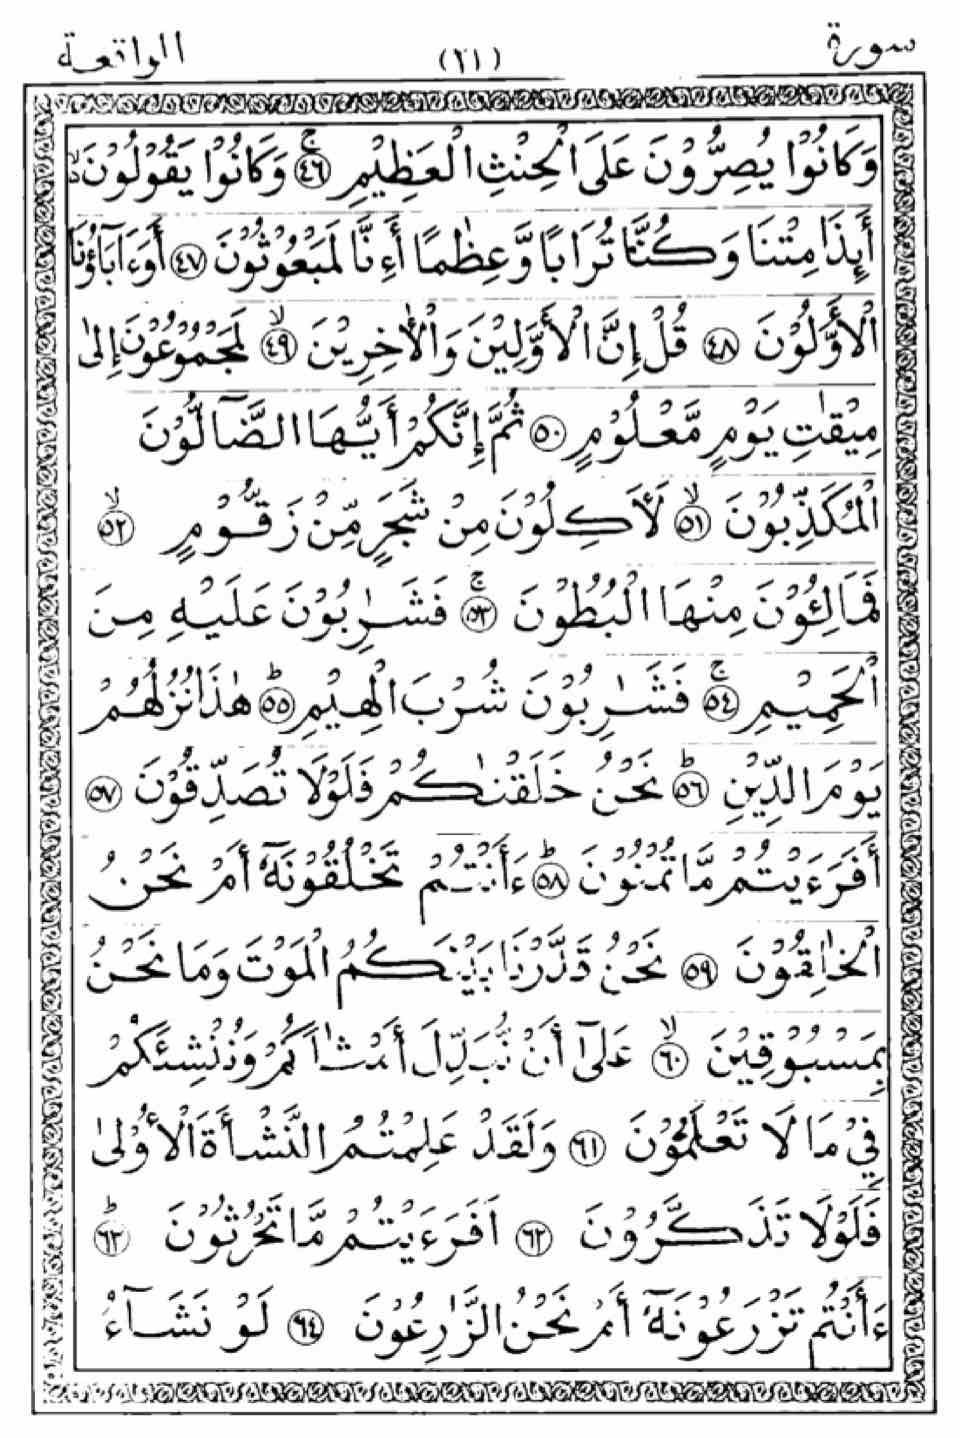 سورة (٢١) الواقعة
وَكَانُوْا يُصِرُّوْنَ عَلَى الْحِنْثِ الْعَظِيْمِ ۚ ﴿٤٦﴾ وَكَانُوْا يَقُوْلُوْنَ ۙ
أَئِذَا مِتْنَا وَكُنَّا تُرَابًا وَّعِظٰمًا أَءِنَّا لَمَبْعُوْثُوْنَ ﴿٤٧﴾ أَوَءَابَآؤُنَا
الْأَوَّلُوْنَ ﴿٤٨﴾ قُلْ إِنَّ الْأَوَّلِيْنَ وَالْاٰخِرِيْنَ ۙ ﴿٤٩﴾ لَمَجْمُوْعُوْنَ إِلٰى
مِيْقٰتِ يَوْمٍ مَّعْلُوْمٍ ﴿٥٠﴾ ثُمَّ إِنَّكُمْ أَيُّهَا الضَّآلُّوْنَ
الْمُكَذِّبُوْنَ ۙ ﴿٥١﴾ لَأَكِلُوْنَ مِنْ شَجَرٍ مِّنْ زَقُّوْمٍ ۙ ﴿٥٢﴾
فَمَالِئُوْنَ مِنْهَا الْبُطُوْنَ ۚ ﴿٥٣﴾ فَشَٰرِبُوْنَ عَلَيْهِ مِنَ
الْحَمِيْمِ ۚ ﴿٥٤﴾ فَشَٰرِبُوْنَ شُرْبَ الْهِيْمِ ۗ ﴿٥٥﴾ هٰذَا نُزُلُهُمْ
يَوْمَ الدِّيْنِ ۗ ﴿٥٦﴾ نَحْنُ خَلَقْنٰكُمْ فَلَوْلَا تُصَدِّقُوْنَ ﴿٥٧﴾
أَفَرَءَيْتُمْ مَّا تُمْنُوْنَ ۗ ﴿٥٨﴾ ءَأَنْتُمْ تَخْلُقُوْنَهٗٓ أَمْ نَحْنُ
الْخٰلِقُوْنَ ﴿٥٩﴾ نَحْنُ قَدَّرْنَا بَيْنَكُمُ الْمَوْتَ وَمَا نَحْنُ
بِمَسْبُوْقِيْنَ ۙ ﴿٦٠﴾ عَلٰٓى أَنْ نُّبَدِّلَ أَمْثَالَكُمْ وَنُنْشِئَكُمْ
فِيْ مَا لَا تَعْلَمُوْنَ ﴿٦١﴾ وَلَقَدْ عَلِمْتُمُ النَّشْأَةَ الْأُوْلٰى
فَلَوْلَا تَذَكَّرُوْنَ ﴿٦٢﴾ اَفَرَءَيْتُمْ مَّا تَحْرُثُوْنَ ۗ ﴿٦٣﴾
ءَأَنْتُمْ تَزْرَعُوْنَهٗٓ أَمْ نَحْنُ الزَّارِعُوْنَ ﴿٦٤﴾ لَوْ نَشَآءُ